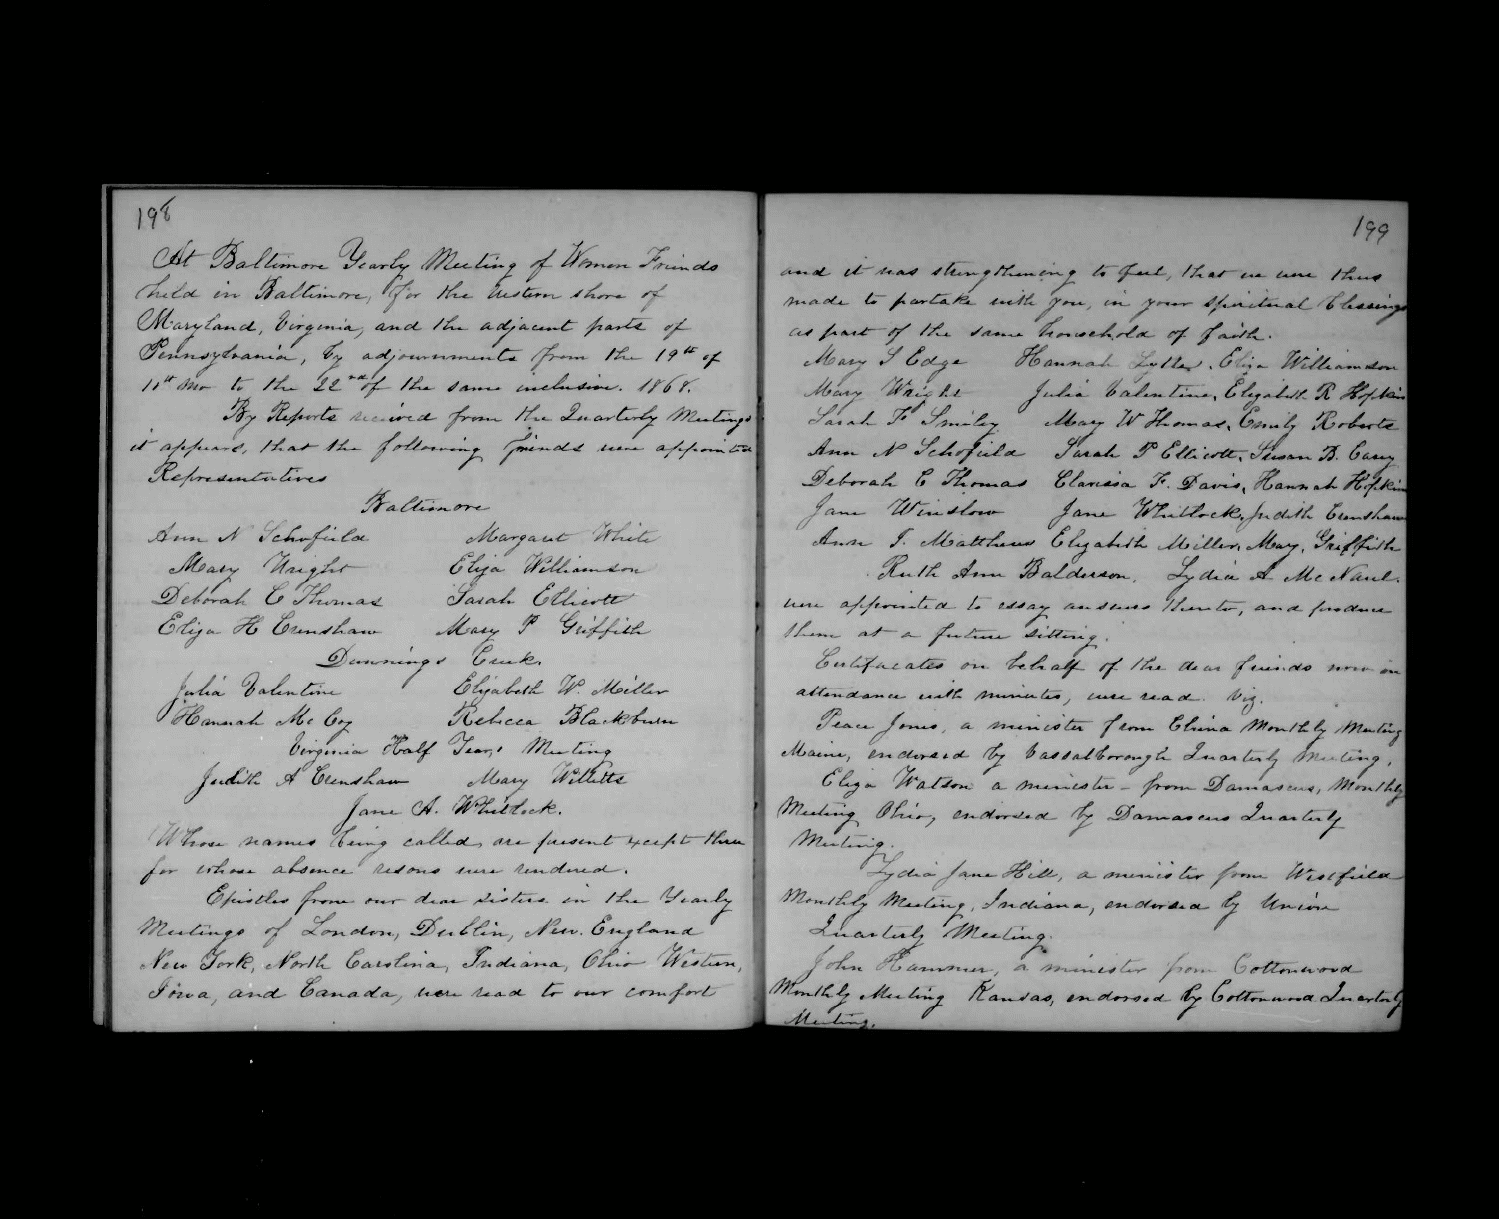 198
At Baltimore Yearly Meeting of Women Friends
held in Baltimore, for the Western shore of
Maryland, Virginia, and the adjacent parts of
Pennsylvania, by adjournments from the 19th of
11th mo to the 22nd of the same inclusive. 1868.
By Reports received from the Quarterly Meetings
it appears, that the following friends were appointed
Representatives
Baltimore
Ann N Schofield Margaret White
Mary Wright Eliza Williamson
Deborah C Thomas Sarah Ellicott
Eliza H Crenshaw Mary P Griffith
Dunnings Creek.
Julia Valentine Elizabeth W. Miller
Hannah Mc Coy Rebecca Blackburn
Virginia Half Years Meeting
Judith A Crenshaw Mary Willetts
Jane A. Whitlock.
Whose names being called, are present except three
for whose absence resons were rendered.
Epistles from our dear sisters in the Yearly
Meetings of London, Dublin, New. England
New York, North Carolina, Indiana, Ohio Western,
Iowa, and Canada, were read to our comfort
199
and it was strengthening to feel, that we were thus
made to partake with you, in your spiritual blessings
as part of the same household of faith.
Mary S Edge Hannah Lytler, Eliza Williamson
Mary Wright Julia Valentine, Elizabeth R Hopkins
Sarah F Smiley Mary W Thomas, Emily Roberts
Ann N Schofield Sarah P Ellicott, Susan B. Carey
Deborah C Thomas Clarissa F. Davis, Hannah Hopkins
Jane Winslow Jane Whitlock, Judith Crenshaw
Ann J. Matthews Elizabeth Miller, Mary, Griffith
Ruth Ann Balderson, Lydia A McNaul.
were appointed to essay answers thereto, and produce
them at a future sitting.
Certifacates on behalf of the dear friends now in
attendance with minutes, were read. viz.
Peace Jones, a minister from China Monthly Meeting
Maine, endorsed by Vassalborough Quarterly Meeting,
Eliza Watson a minister – from Damascus, Monthly
Meeting Ohio, endorsed by Damascus Quarterly
Meeting.
Lydia Jane Hill, a minister from Westfield
Monthly Meeting, Indiana, endorsed by Union
Quarterly Meeting.
John Hammer, a minister from Cottonwood
Monthly Meeting Kansas, endorsed by Cottonwood Quarterly
Meeting.